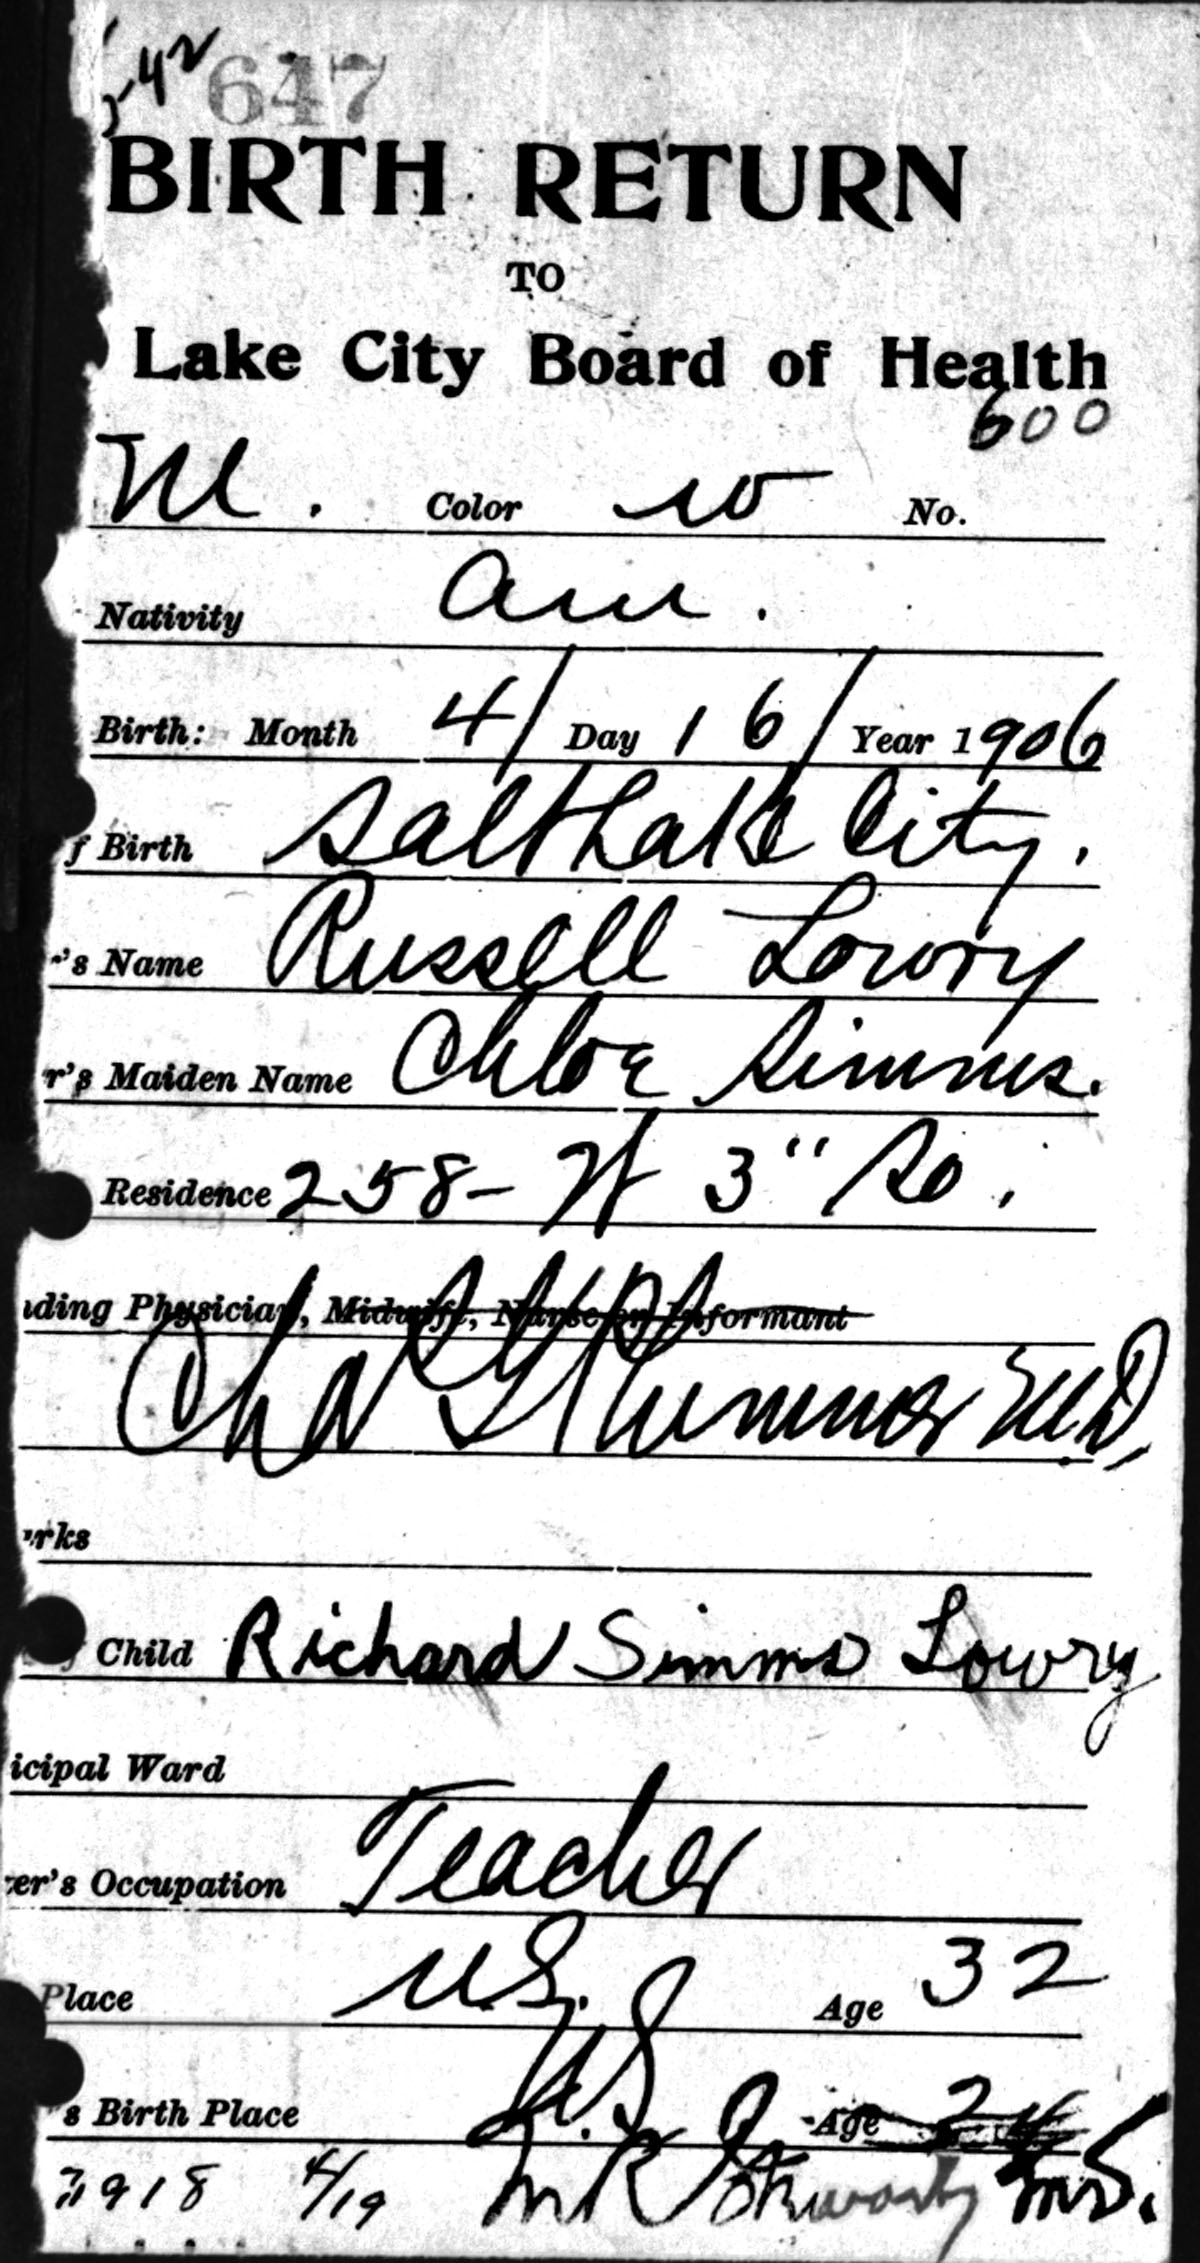 -42 647
BIRTH RETURN
TO
Lake City Board of Health
600
M. Color W No.
Nativity Am.
Birth: Month 4/ Day 16/ Year 1906
f Birth Salt Lake City.
's Name Russell Lowry
r's Maiden Name Chloe Simms.
Residence 258- W 3" So.
ding Physician, Midwife, Nurse or Informant
Chas Plummer M.D.
rks
Child Richard Simms Lowry
icipal Ward
er's Occupation Teacher
Place U.S. Age 32
's Birth Place U.S. Age 24
918 4/19